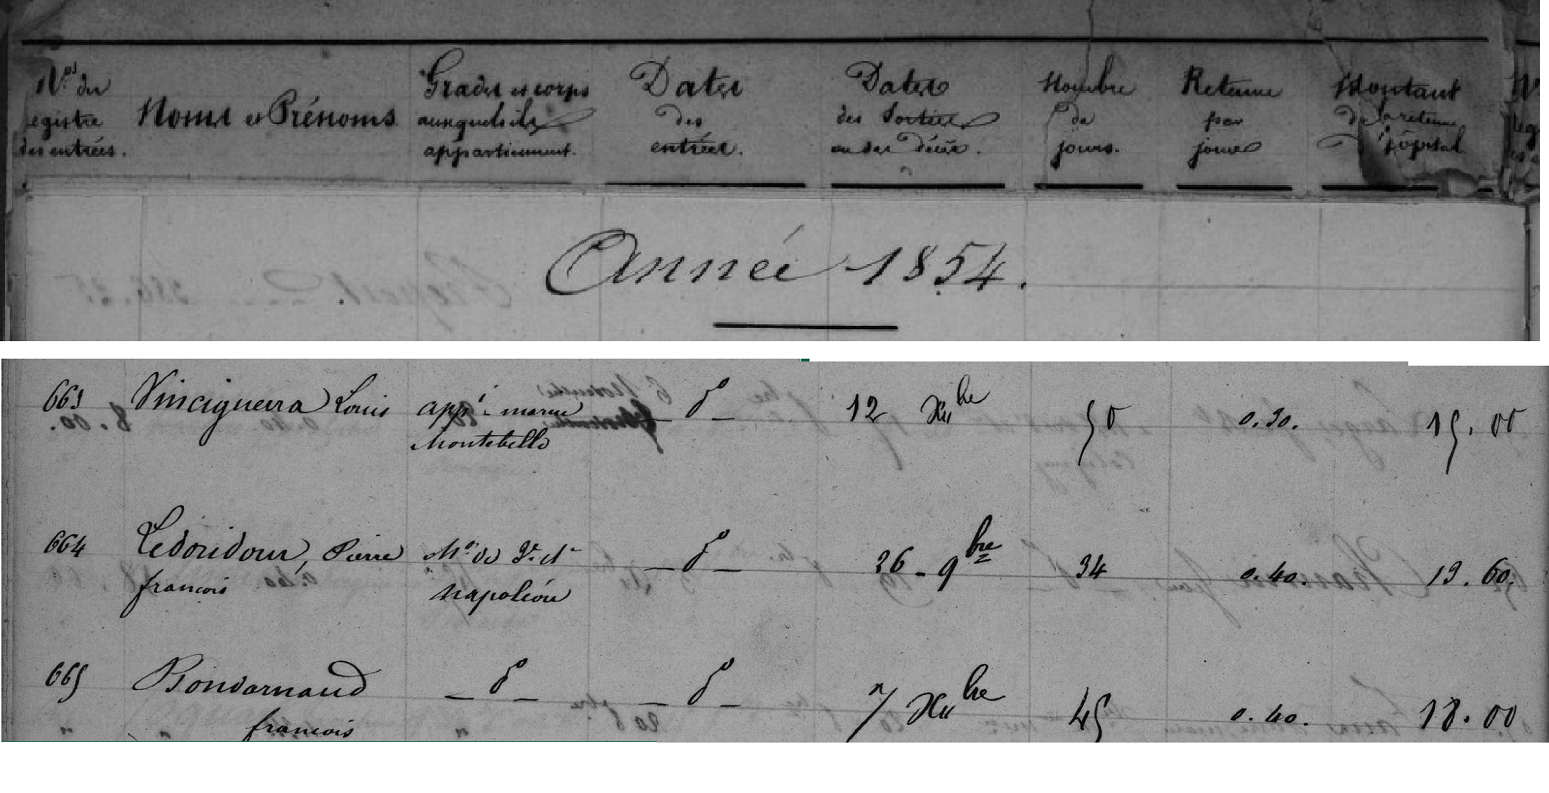 Nos du registre des entrées. Noms et Prénoms Grades et corps auxquels ils appartiennent. Dates des entrées. Dates des Sorties ou des décès. Nombre de jours. Retenue par jour Montant de la retenue hôpital
Année 1854.
663 Vinciguerra Louis appé marin dº 12 Xbre 50 0.30. 15.00
Montebello
664 Ledoridour, Pierre Mot de 3e cl dº 26 9bre 34 0.40. 13.60.
françois Napoléon
665 Bondarnaud dº dº 7 Xbre 45 0.40. 18.00
françois